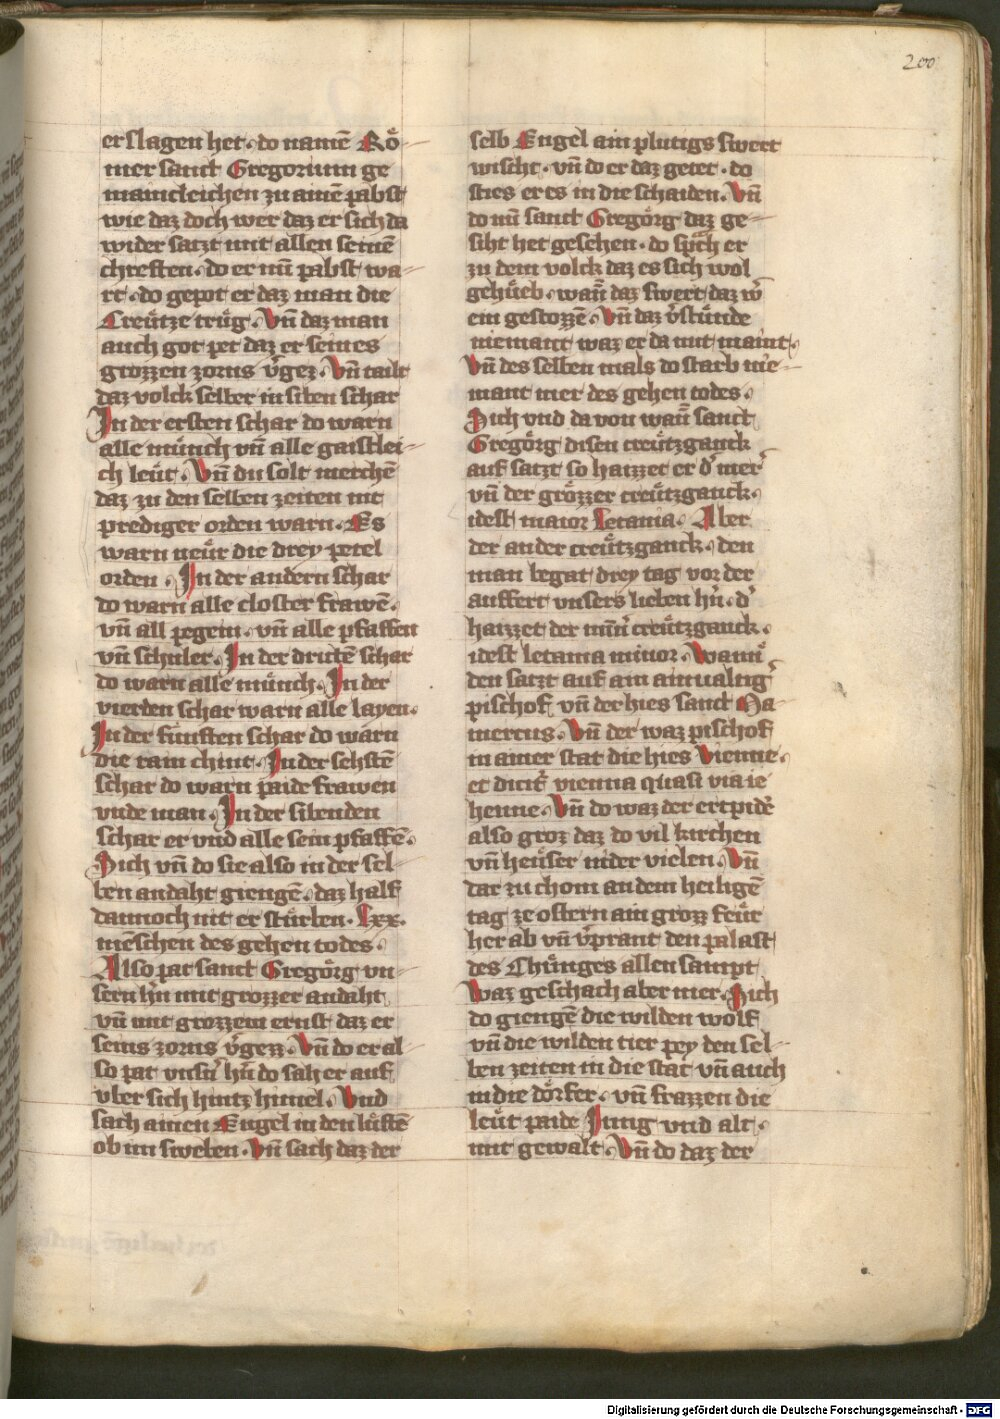 200
er slagen het · do namē Rö-
mer sanct Gregorium ge
maincleichen zu ainē pabst
wie daz doch wer daz er sich da
wider satzt mit allen seinē
chreften · do er nū pabst wa-
rt · do gepot er daz man die
Creütze trüg · Vn̄ daz man
auch got pet daz er seines
grozzen zorns v̓gez · Vn̄ tailt
daz volck selber in siben schar
In der ersten schar do warn
alle münch vn̄ alle gaistlei-
ch leüt · Vn̄ du solt merchē
daz zu den selben zeiten nit
prediger orden warn · Es
warn neür die drey petel
orden · In der andern schar
do warn alle closter frawē ·
vn̄ all pegein · vn̄ alle pfaffen
vn̄ schuler · In der drittē schar
do warn alle münch · In der
vierden schar warn alle layen ·
In der fünften schar do warn
die rain chint · In der sehstē
schar do warn paide frawen
vnde man · In der sibenden
schar er vnd alle sein pfaffē ·
Sich vn̄ do sie also in der sel-
ben andaht giengē · daz half
dannoch nit er stürben · Lxx ·
mēschen des gehen todes ·
Also pat sanct Gregörg vn-
sern hn̄ mit grozzer andaht
vn̄ mit grozzem ernst daz er
seins zorns v̓gezz · Vn̄ do er al-
so pat vnsn̄ hn̄ do sah er auf
vber sich hintz himel · Vnd
sach ainen Engel in den lüftē
ob im sweben · Vn̄ sach daz der
selb Engel ain plutigs swert
wischt · vn̄ do er daz getet · do
sties er es in die schaiden · Vn̄
do nū sanct Gregörg daz ge-
siht het gesehen · do sprach er
zu dem volck daz es sich wol
gehüeb · wan̄ daz swert daz w̓
ein gestozzē · Vn̄ daz v̓stünde
niemant waz er da mit maint ·
Vn̄ des selben mals do starb nie-
mant mer des gehen todes ·
Sich vnd da von wan̄ sanct
Gregörg disen creützganck
auf satzt so haizzet er d̓ mer̓
vn̄ der grözzer creützganck ·
idest maior Letania · Aber
der ander creützganck · den
man begat drey tag vor der
auffert vnsers lieben hn̄ · d̓
haizzet der mīn̓ creützganck ·
idest letania minor · Wann̓
den satzt auf ain ainualtig̓
pischof vn̄ der hies sanct Ma-
mercus · Vn̄ der waz pischof
in ainer stat die hies Vienne ·
et dicit̓ vienna quasi via ie
henne · Vn̄ do waz der ertpidē
also groz daz do vil kirchen
vn̄ heüser nider vielen · Vn̄
dar zu chom an dem heiligē
tag ze ostern ain grozz feür
her ab vn̄ v̓prant den palast
des Chünges allen sampt
Waz geschach aber mer · Sich
do giengē die wilden wolf
vn̄ die wilden tier pey den sel-
ben zeiten in die stat vn̄ auch
in die dörfer · vn̄ frazzen die
leüt paide Jung vnd alt ·
mit gewalt · Vn̄ do daz der
Digitalisierung gefördert durch die Deutsche Forschungsgemeinschaft - DFG